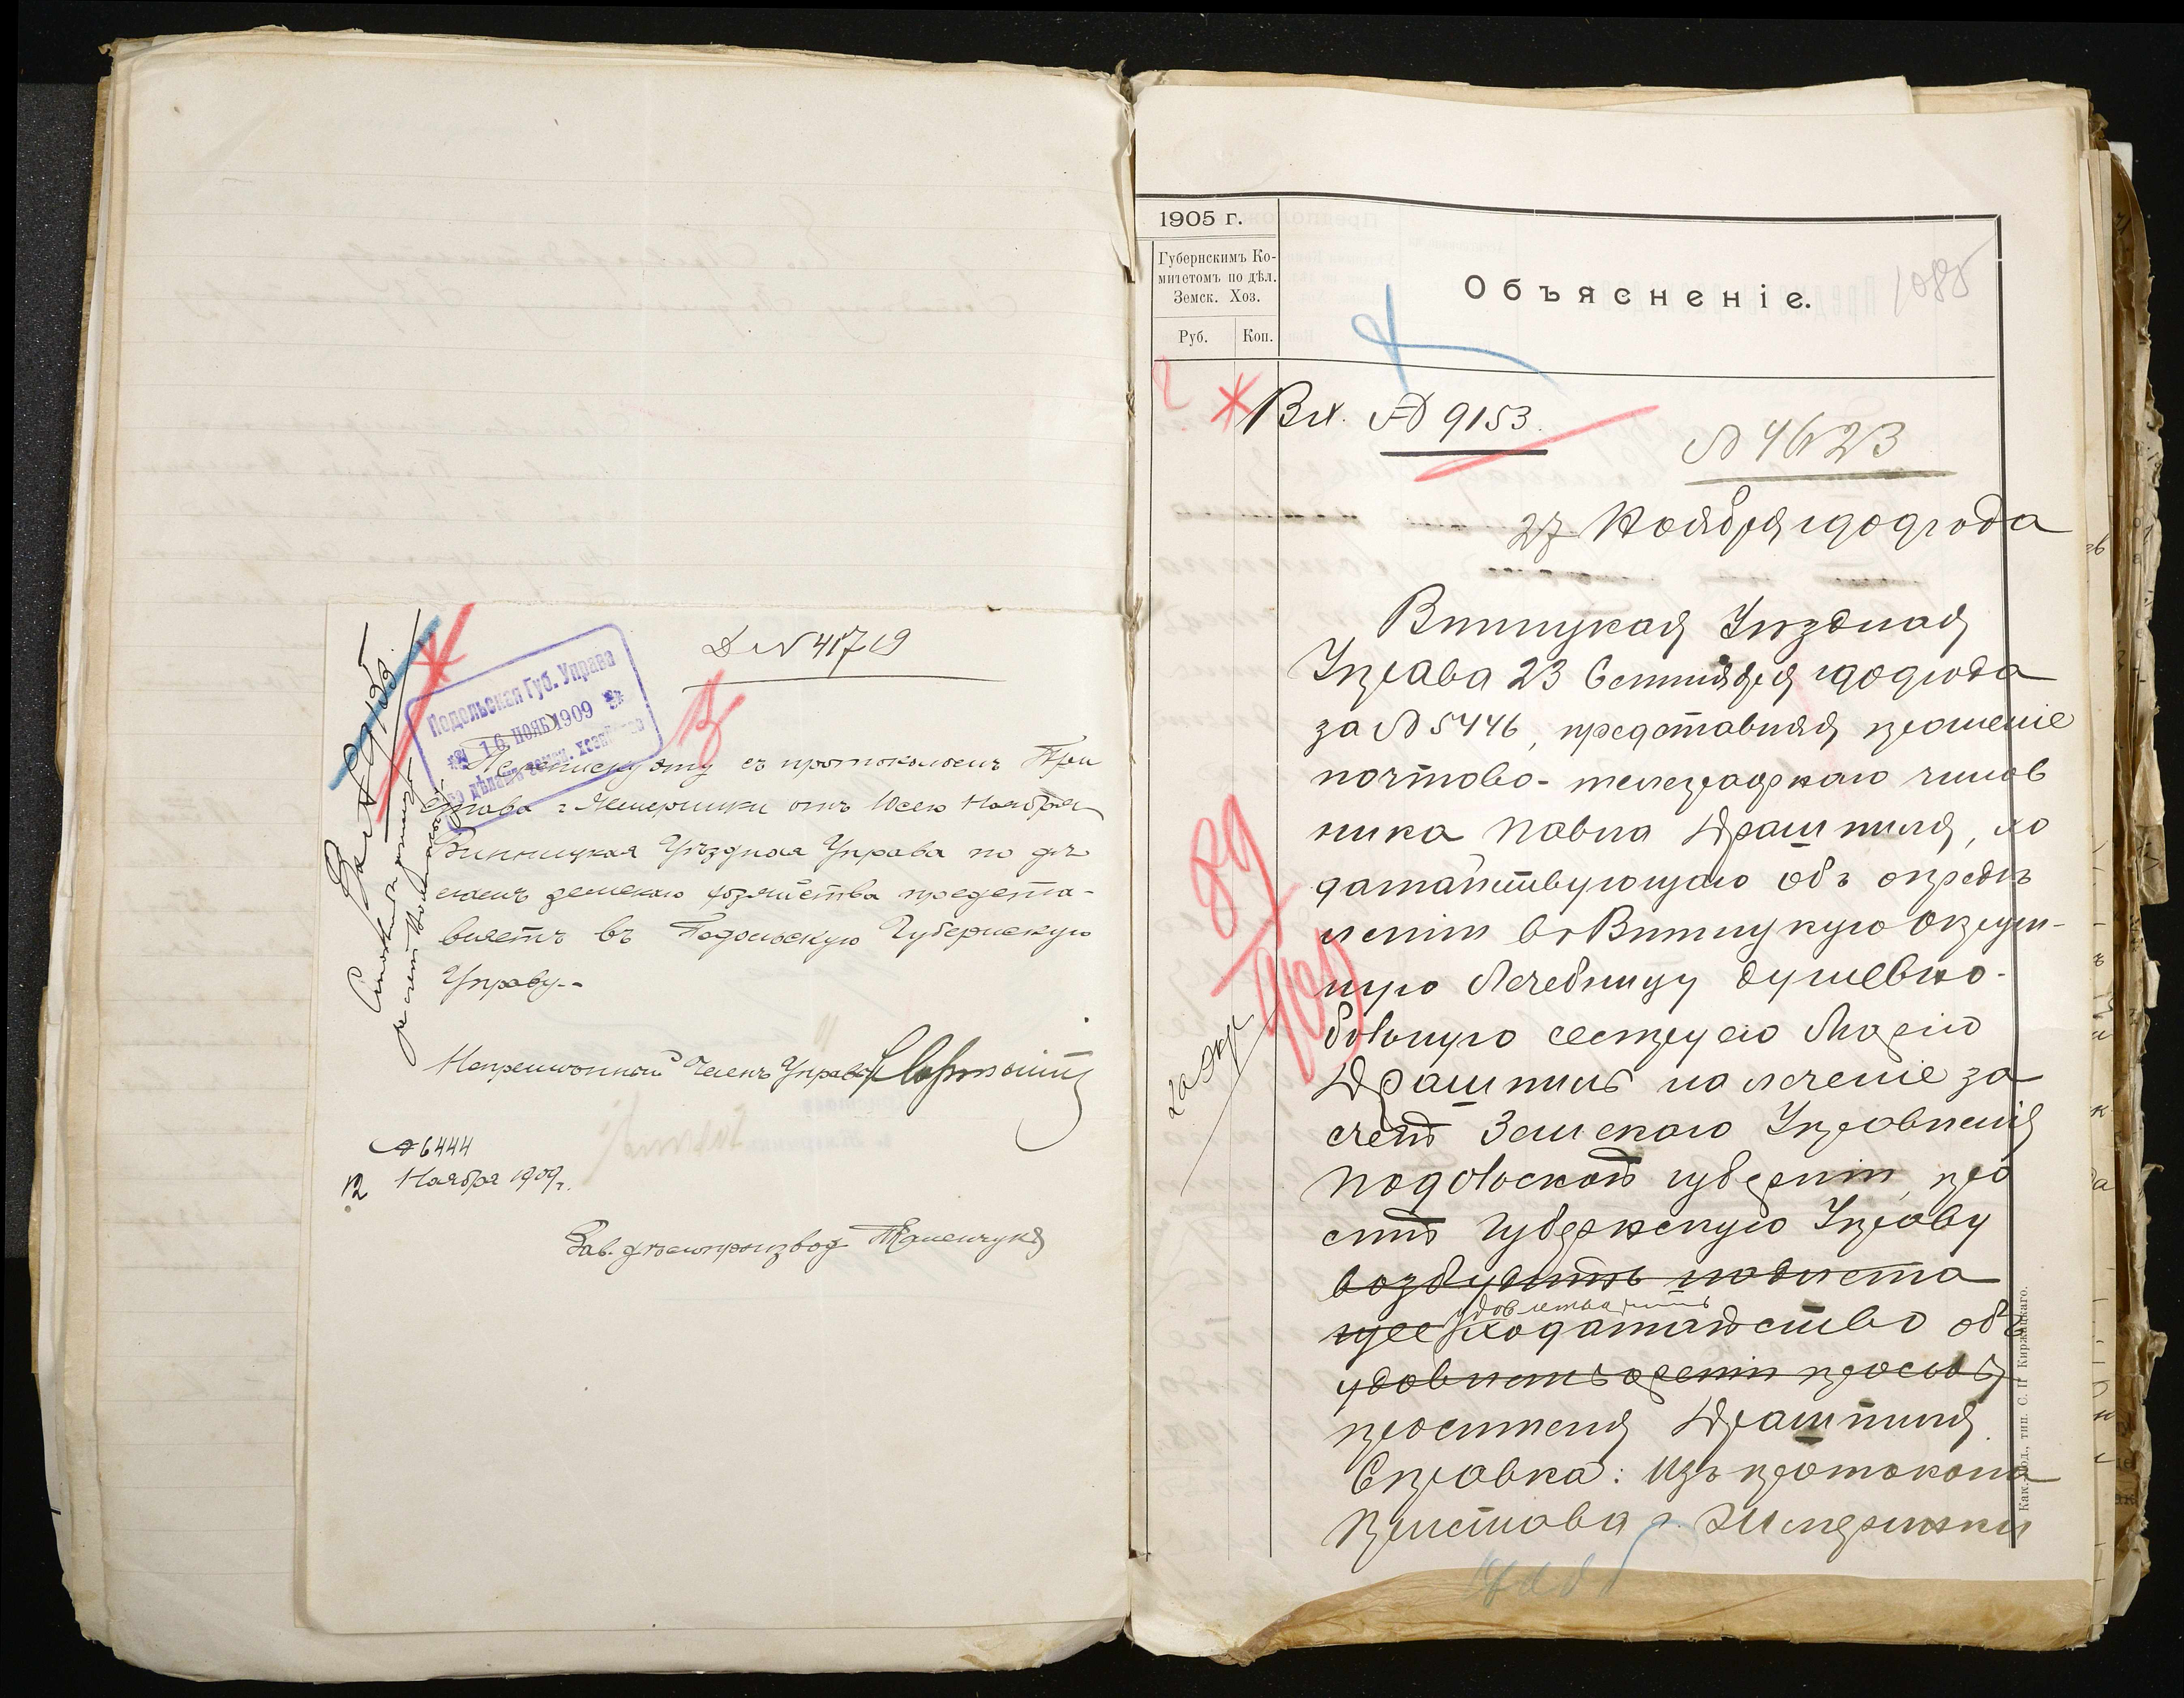 Д № 41719
Подольская Губ. Управа
16 НОЯБ 1909
по дѣламъ земск. хозяйства
Переписку эту съ протоколомъ При
става г. Жмеринки отъ 10 сего Ноября
Винницкая Уѣздная Управа по дѣ
ламъ земскаго хозяйства предста-
вляетъ въ Подольскую Губернскую
Управу.-
Непремѣнный Членъ Управы
№ 6444
12 Ноября 1909 г.
Зав. дѣлопроизвод.
1905 г.
Губернскимъ Ко-
митетомъ по дѣл.
Земск. Хоз.
Руб. Коп.
Объясненіе.
1085
Вх. № 9153.
№ 4623
27 Ноября 1909 года
Винницкая Уѣздная
Управа 23 Сентября 1909 года
за № 5446, представляя прошеніе
почтово-телеграфнаго чинов
ника Павла Драшпиля, хо
датайствующаго объ опредѣ
леніи въ Винницкую Окруж-
ную Лечебницу душевно-
больную сестру его Марію
Драшпиль на леченіе за
счетъ Земскаго Управленія
Подольской губерніи, про
ситъ Губернскую Управу
возбудить надлежа
удовлетворить
щее ходатайство объ
удовлетвореніи просьбы
просителя Драшпиля.
Справка: Изъ протокола
Пристава г. Жмеринки
89
Кам.-Под., тип. С. П. Киржацкаго.